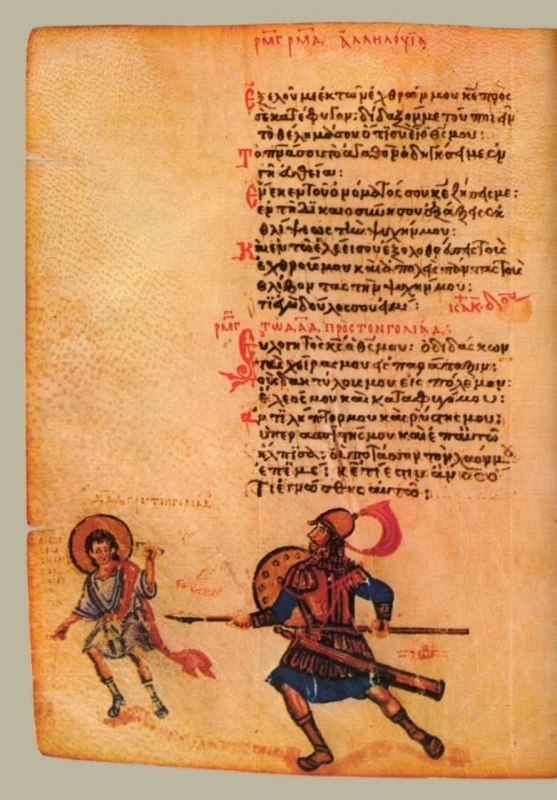 ρμγ ρμδ ἀλληλούϊα
Ἐξελοῦ με ἐκ τῶν ἐχθρῶν μου κε προς
σὲ κατέφυγον· δίδαξόν με τοῦ ποιεῖν
τὸ θέλημά σου ὅτι σὺ εἶ ὁ θς μου:
Τὸ πνα σου το ἀγαθὸν ὁδηγήσει με ἐν
γῆ εὐθεία:
Ἕνεκεν τοῦ ὀνόματός σου κε ζήσεις με:
ἐν τῆ δικαιοσύνη σου ἐξάξεις ἐκ
θλίψεως τὴν ψυχήν μου:
Καὶ ἐν τῶ ἐλέει σου ἐξολοθρεύσεις τοὺς
ἐχθρούς μου καὶ ἀπολεῖς πάντας τοὺς
θλίβοντας τὴν ψυχήν μου:
ὅτι ἐγὼ δοῦλός σου εἰμί:
ρμγ Τῶ δαδ προς τον γολιάδ:
Εὐλογητὸς κς ὁ θς μου· ὁ διδάσκων
τὰς χεῖρας μου εἰς παράταξιν;
τοὺς δακτύλους μου εἰς πόλεμον:
Ἔλεός μου καὶ καταφυγή μου:
ἀντιλήπτωρ μου καὶ ῥύστης μου;
ὑπερασπιστής μου καὶ ἐπ αὐτῶ
ἤλπισα; ὁ ὑποτάσσων τὸν λαόν μου
ὑπ ἐμέ; κε τί ἐστιν ἄνος ὅ
τι ἐγνώσθης αὐτῶ;
δαδ προς τον γολιαδ